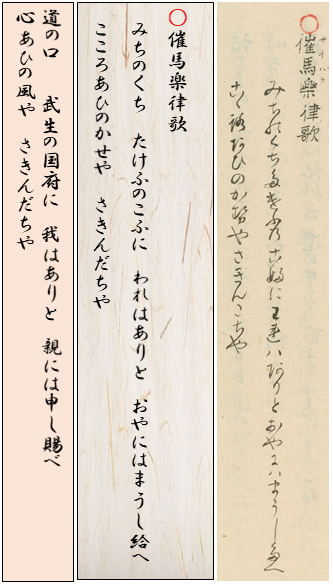 ○催馬樂律歌
みちのくちたけふのこふにわれハありとおやにハまうし給へ
こゝろあひのかせやさきんたちや
○催馬樂律歌
みちのくち　たけふのこふに　われはありと　おやにはまうし給へ
こころあひのかせや　さきんだちや
道の口　武生の国府に　我はありと　親には申し賜べ
心あひの風や　さきんだちや